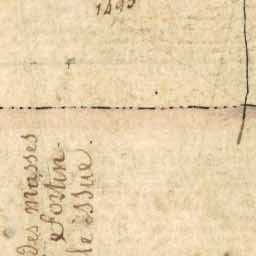 1495
des Masses
e Sortin-
le issue.